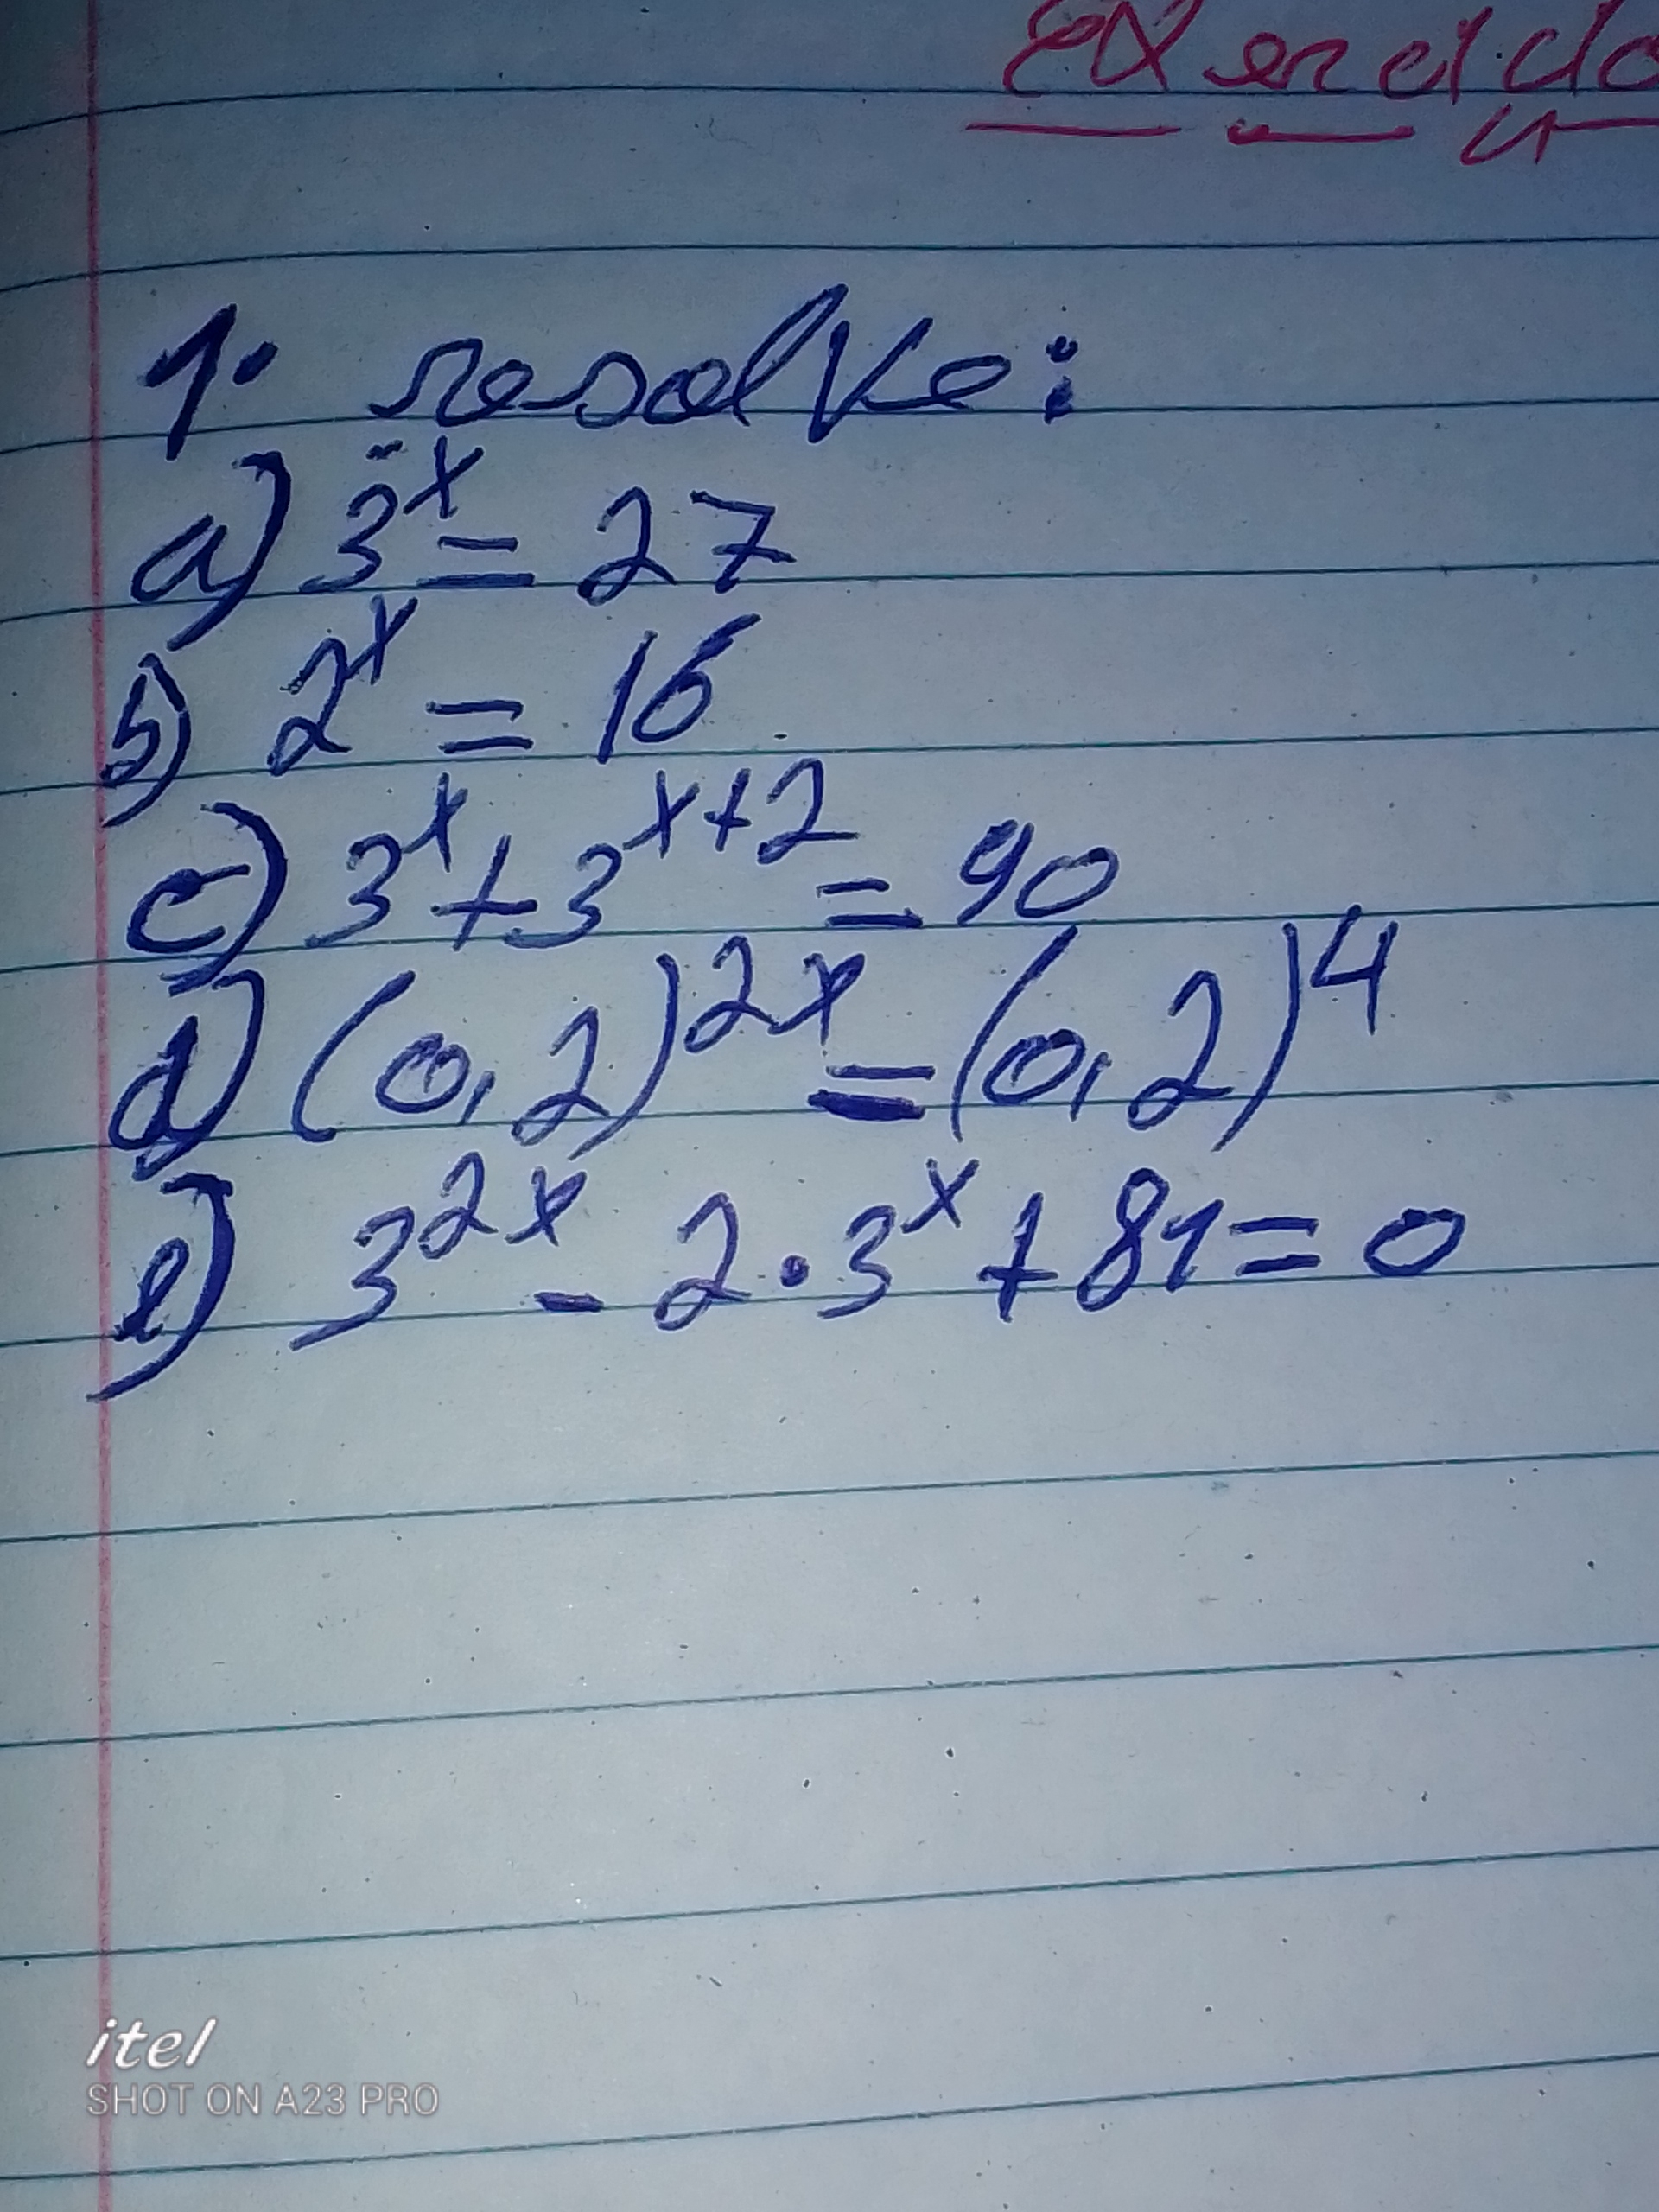 Exercício
1. resolve:
a) 3^x = 27
b) 2^x = 16
c) 3^x + 3^(x+2) = 90
d) (0,2)^(2x) = (0,2)^4
e) 3^(2x) - 2 · 3^x + 81 = 0
itel
SHOT ON A23 PRO